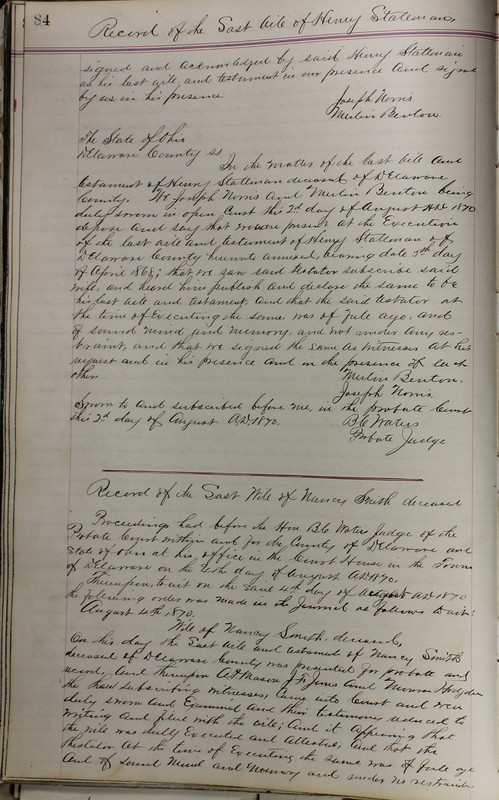 84
Record of the Last Will of Henry Stateman
signed and acknowledged by said Henry Stateman
as his last will and testament in our presence and signed
by us in his presence.
Joseph Norris
Merlin Benton
The State of Ohio
Delaware County ss
In the matter of the last will and
testament of Henry Stateman deceased of Delaware
County. We Joseph Norris and Merlin Benton being
duly sworn in open Court this 2d day of August AD 1870
depose and say that we were present at the Execution
of the last will and testament of Henry Stateman of
Delaware County hereunto annexed, bearing date 3th day
of April 1868; that we saw said testator subscribe said
will, and heard him publish and declare the same to be
his last will and testament, and that the said testator at
the time of executing the same was of full age, and
of sound mind and memory, and not under any res-
traint, and that we signed the same as witnesses at his
request and in his presence and in the presence of each
other.
Merlin Benton.
Joseph Norris
Sworn to and subscribed before me, in the probate Court
this 2d day of August AD 1870.
B C Waters
Probate Judge
Record of the Last Will of Nancy Smith deceased
Proceedings had before the Hon B C Waters Judge of the
Probate Court within and for the County of Delaware and
State of Ohio at his office in the Court House in the Town
of Delaware on the 4th day of August AD 1870.
Thereupon to wit on the said 4th day of August AD 1870
the following order was made in the Journal as follows to wit:
August 4th 1870.
Will of Nancy Smith, deceased,
On this day the last will and testament of Nancy Smith
deceased of Delaware County was presented for probate and
record, And thereupon Mason Jones and Monroe
the subscribing witnesses, Came into Court and were
duly sworn and Examined and their testimony reduced to
writing and filed with the will; And it appearing that
the will was duly Executed and Attested, And that the
testator at the time of Executing the same was of full age
And of sound Mind and Memory and under no restraint